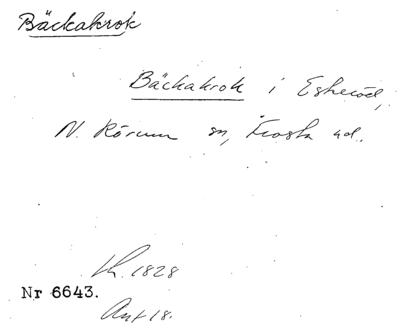 Bäckakrok
Bäckakrok i Eskeröd,
N. Rörum sn, Frosta hd.
Lh. 1828
Nr 6643.
Ant 18.